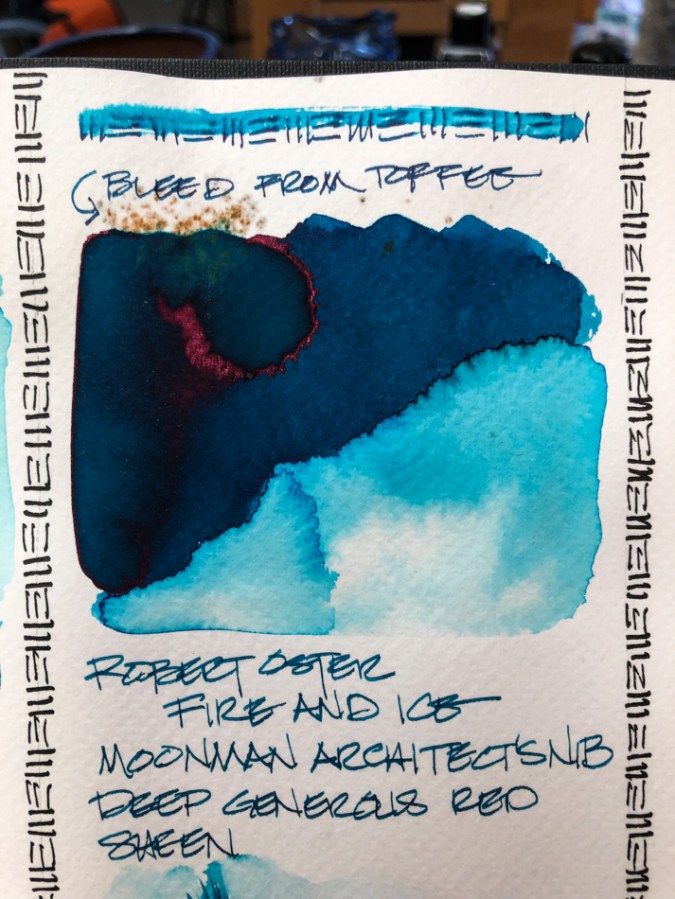 BLEED FROM TOFFEE
ROBERT OSTER
FIRE AND ICE
MOONMAN ARCHITECT'S NIB
DEEP GENEROUS RED
SHEEN